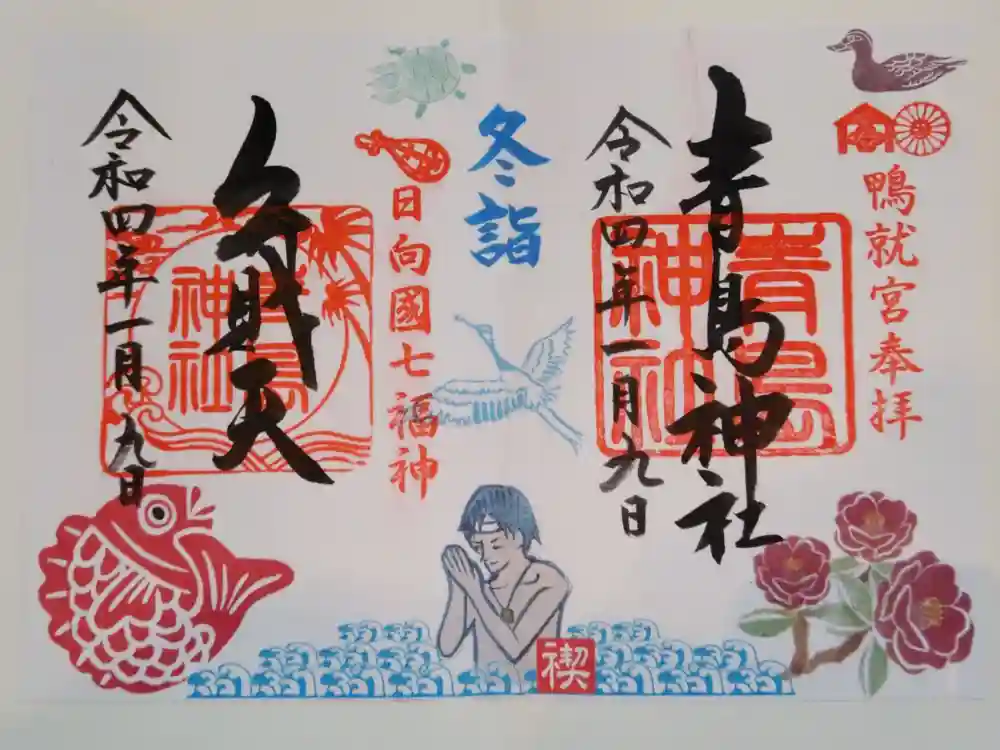 鴨就宮奉拝
青島神社
青島
神社
令和四年一月九日
冬詣
日向國七福神
弁財天
青島
神社
令和四年一月九日
禊